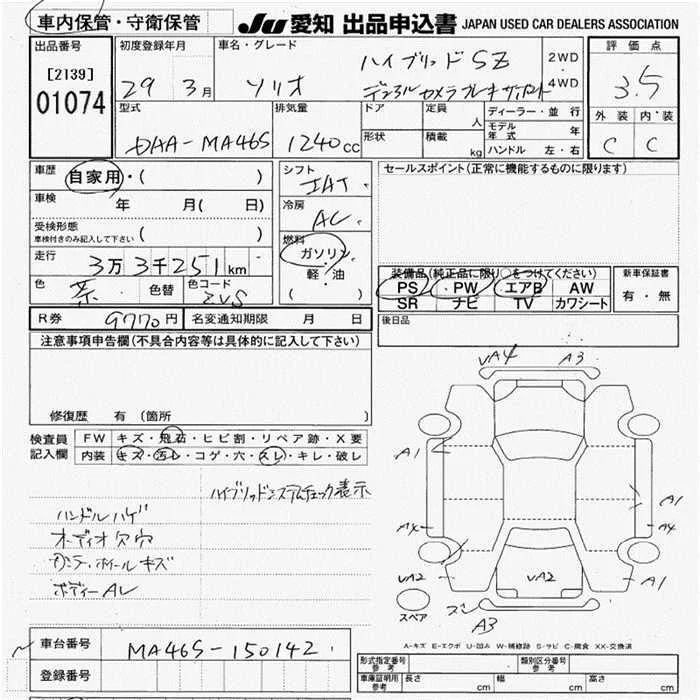 車内保管・守衛保管 JU 愛知 出品申込書 JAPAN USED CAR DEALERS ASSOCIATION
出品番号 初度登録年月 車名・グレード 評価点
[2139] 29 3月 ソリオ ハイブリッドSZ 2WD 3.5
01074 デュアルカメラブレーキサポート 4WD
型式 排気量 ドア 定員 人 ディーラー・並行 外装 内装
DAA-MA46S 1240cc 形状 積載 kg モデル年式 年 C C
ハンドル 左・右
車歴 自家用・( ) シフト IAT セールスポイント(正常に機能するものに限ります)
車検 年 月( 日) 冷房 AC
受検形態 ( )
車検付きのみ記入して下さい
燃料 ガソリン・軽・油 ( )
走行 3万3千251km
装備品(純正品に限り○をつけてください) 新車保証書
色 色替 色コード ZVS
PS PW エアB AW 有・無
SR ナビ TV カワシート
R券 9770円 名変通知期限 月 日 後日品
注意事項申告欄(不具合内容等は具体的に記入して下さい)
修復歴 有 (箇所 )
検査員 FW キズ・飛石・ヒビ割・リペア跡・X要
記入欄 内装 キズ・汚レ・コゲ・穴・スレ・キレ・破レ
ハイブリッドシステムチェック表示
ハンドルハゲ
オーディオ穴穴
ホイールキズ
ボディーAC
VA4 A3
A1 A1
A4 A4
VA2 VA2 A1
スペア スミ A3
A-キズ E-エクボ U-凹み W-補修跡 S-サビ C-腐食 XX-交換済
車台番号 MA46S-150142
登録番号
形式指定番号 参考 類別区分番号 参考
車庫証明用 参考 長さ cm 幅 cm 高さ cm